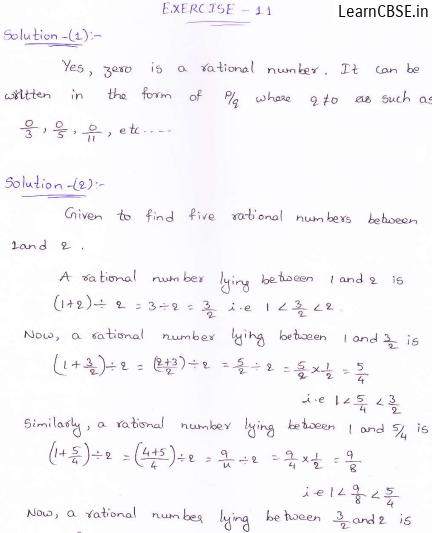 EXERCISE - 1.1
LearnCBSE.in
Solution -(1):-
Yes, zero is a rational number. It can be
written in the form of P/q where q≠0 as such as
0/3, 0/5, 0/11, etc.....
Solution -(2):-
Given to find five rational numbers between
1 and 2.
A rational number lying between 1 and 2 is
(1+2)÷2 = 3÷2 = 3/2 i.e 1 < 3/2 < 2.
Now, a rational number lying between 1 and 3/2 is
(1+3/2)÷2 = (2+3/2)÷2 = 5/2 ÷ 2 = 5/2 × 1/2 = 5/4
i.e 1 < 5/4 < 3/2
Similarly, a rational number lying between 1 and 5/4 is
(1+5/4)÷2 = (4+5/4)÷2 = 9/4 ÷ 2 = 9/4 × 1/2 = 9/8
i.e 1 < 9/8 < 5/4
Now, a rational number lying between 3/2 and 2 is